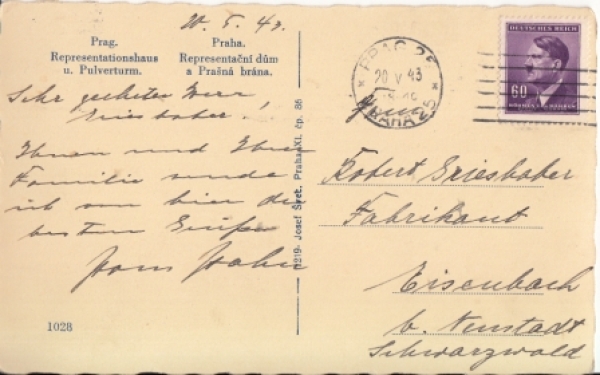 20. 5. 43.
Prag.
Representationshaus
u. Pulverturm.
Praha.
Representační dům
a Prašná brána.
Sehr geehrter Herr
Grieshaber!
Ihnen und Ihrer
Familie sende
ich von hier die
besten Grüße
Hans Hahn
1028
1219- Josef Švec, Praha XI. čp. 86
PRAG 25
20 V 43
PRAHA 25
DEUTSCHES REICH
60
BÖHMEN UND MÄHREN
Robert Grieshaber
Fabrikant
Eisenbach
b. Neustadt
Schwarzwald